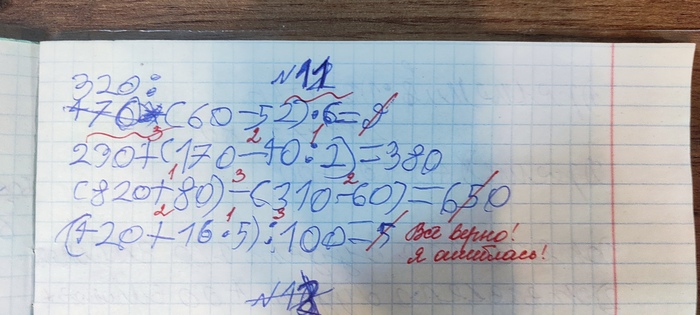 320:
№11
(60-52)·6=
290+(170-40:2)=380
(820+80)-(310-60)=650
(420+16·5):100=5
Всё верно!
Я ошиблась!
№12